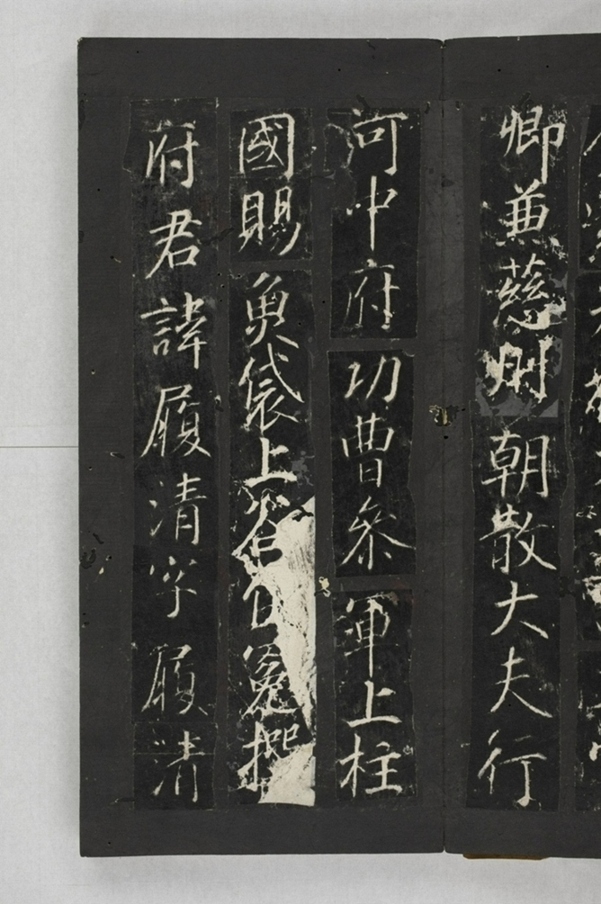 卿兼慈州朝散大夫行
河中府功曹叅軍上柱
國賜魚袋上谷冕撰
府君諱履清字履清